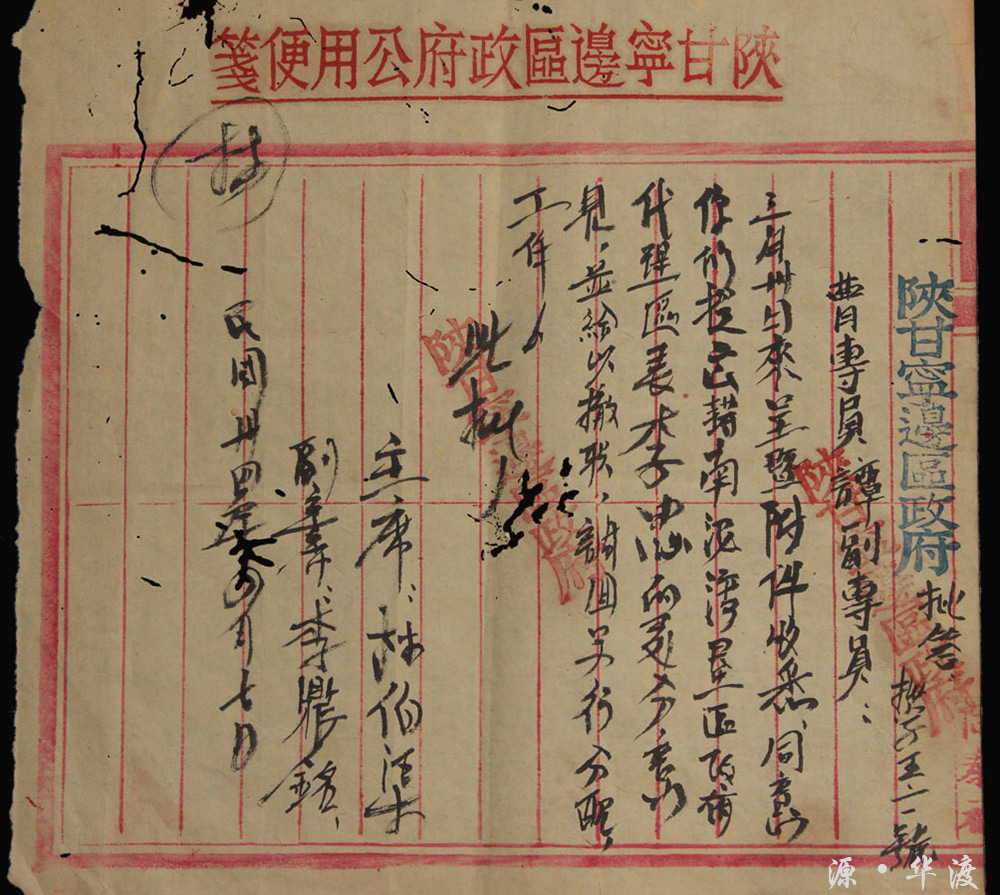 陝甘寧邊區政府公用便箋
陝甘寧邊區政府 批答
號
曹專員 譚副專員：
三月卅日來呈暨附件收悉、同意
你們提出對南泥灣墾區政府
代理區長李子 的處分意
見，並給以撤職、調回另行分配
工作。
此批
主席 林伯渠
副主席 李鼎銘
民國卅四年四月七日
林
源·华渡